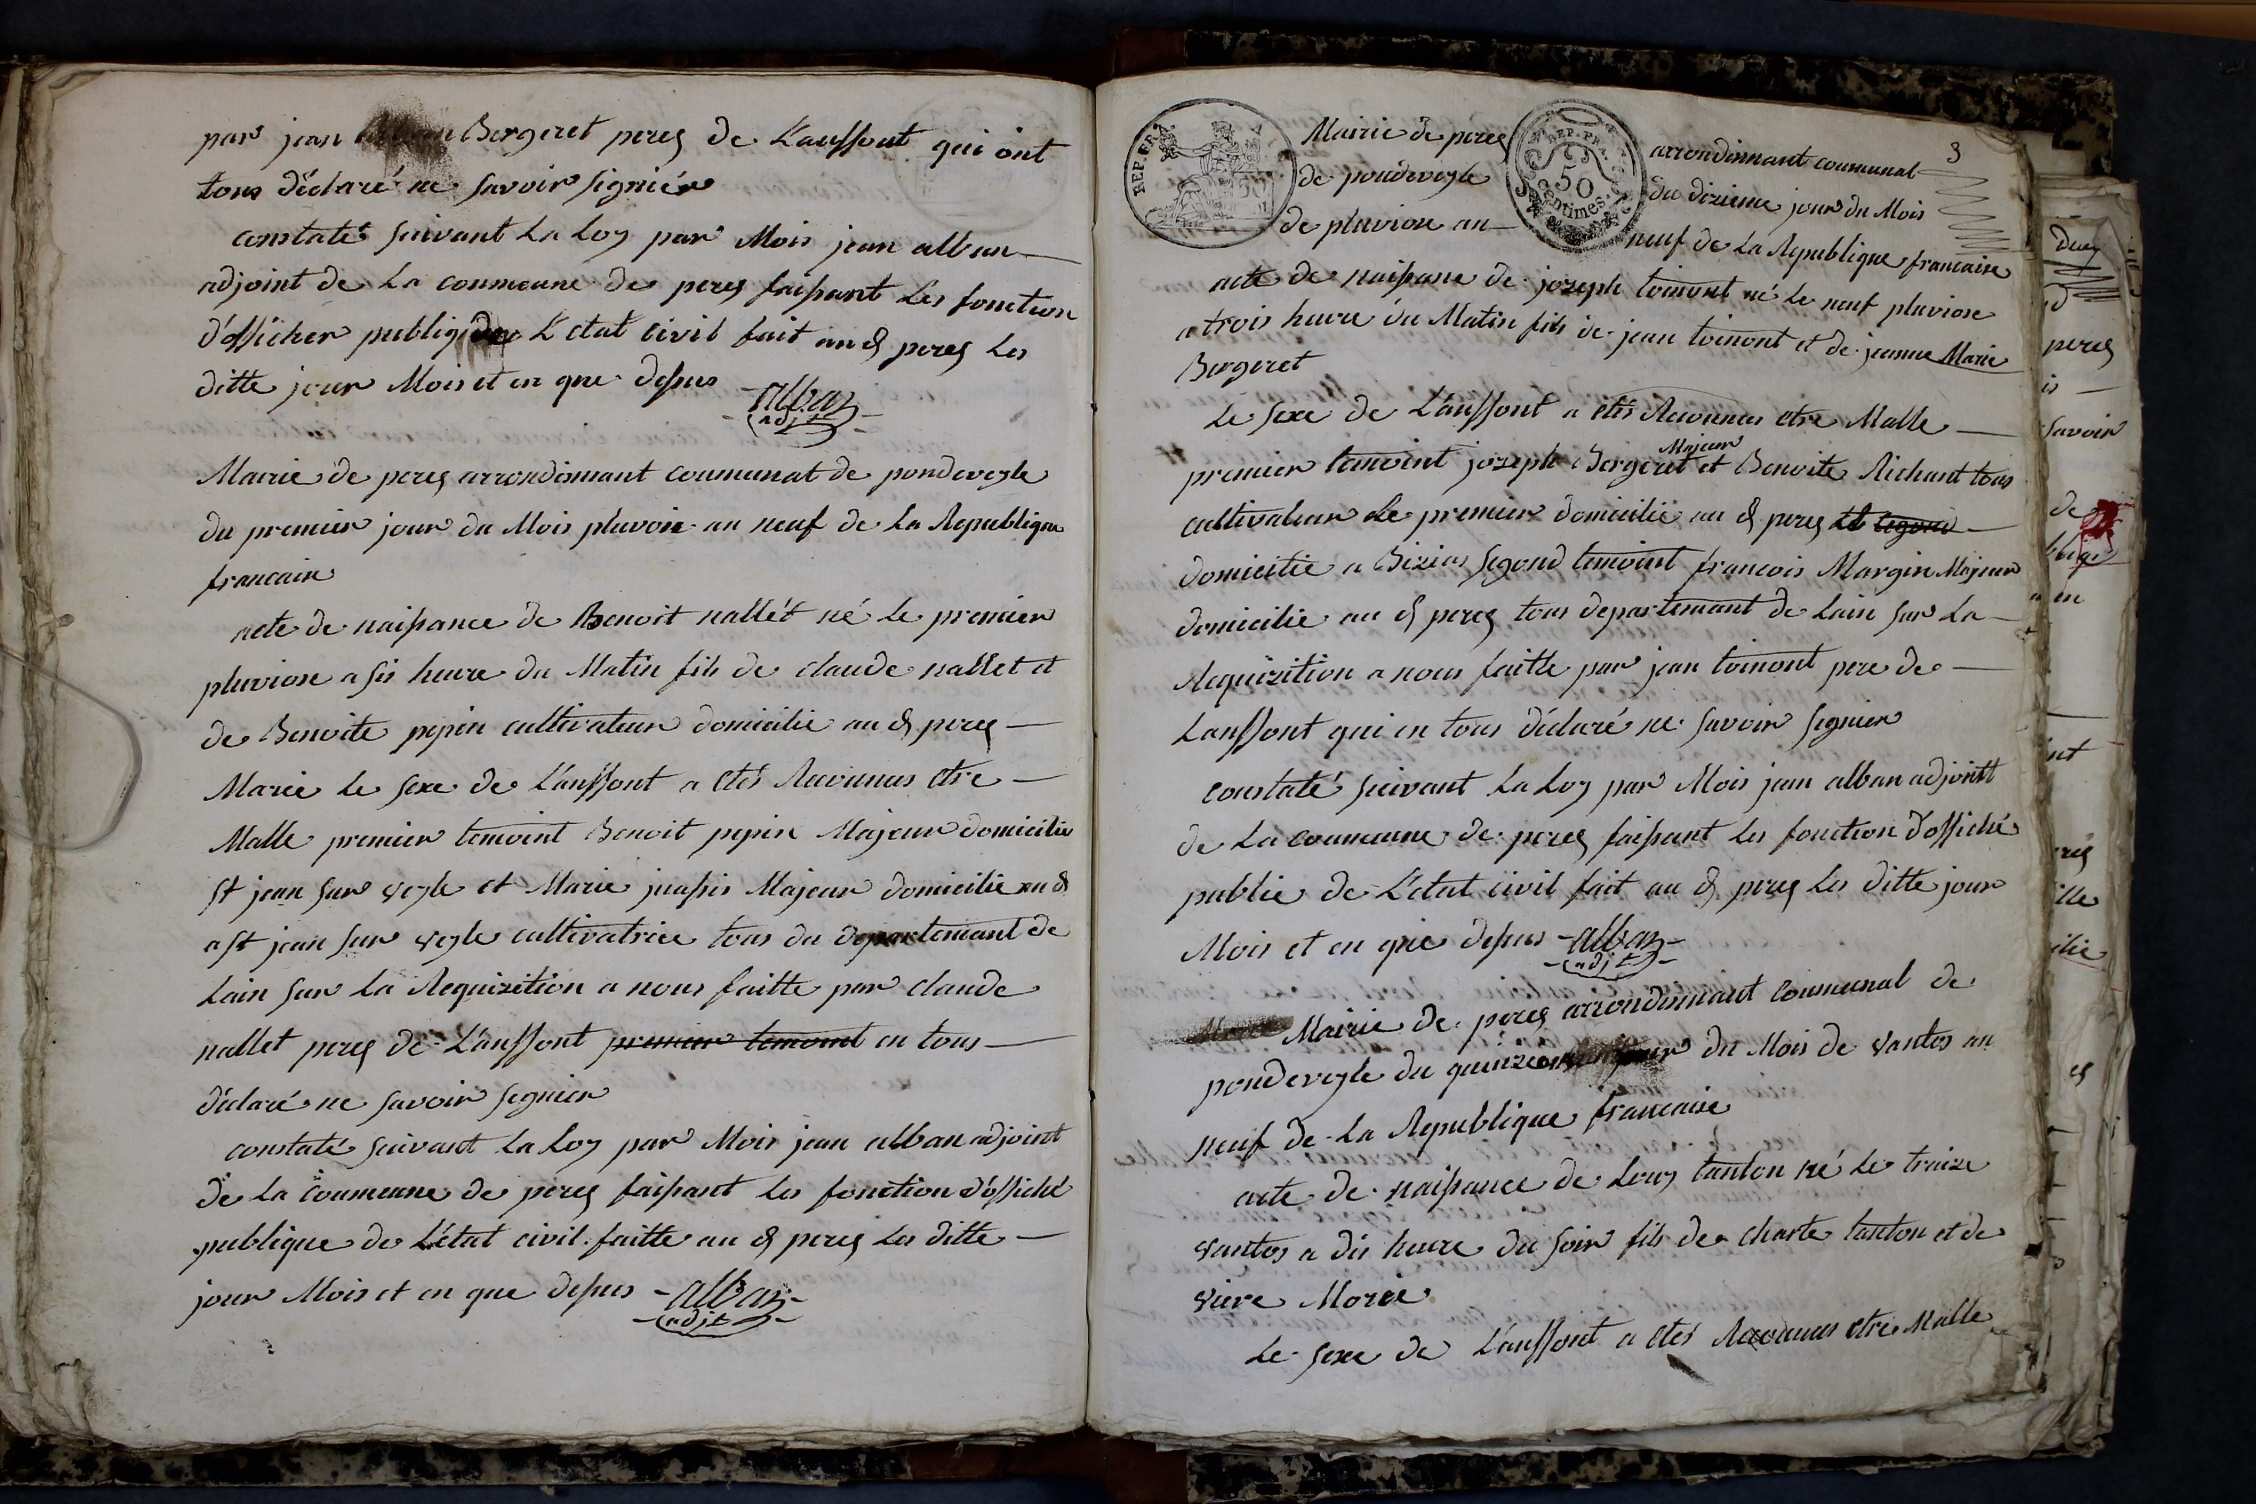 par jean Bergeret pereς de L'aussont qui ont
tous déclaré ne savoir signiér
constaté suivant La Loy par Mois jean alban
adjoint de La commeune de pereς faissant Les fonction
d'officher publiq de L'etat civil fait au d pereς Les
ditte jour Mois et en que dessus
alban
adjt
Mairie de pereς arrondismant coumunat de pondeveyle
du premier jour du Mois pluvoie an neuf de La Republique
francain
acte de naissance de Benoit nallét né le premier
pluviose a sis heure du Matin fils de claude nallet et
de Benoite pepin cultivateur domicilie au d pereς
Marie Le sexe de L'aussont a etés Recounus etre
Malle premier temoint Benoit pepin Majeur domicilie
st jean sur veyle et Marie Majeur domicilie au d
a st jean sur veyle cultivatrice tous du departemant de
Lain sur La Requizition a nous faitte par claude
nallet pereς de L'aussont premier temoint en tous
déclaré ne savoir segnier
constaté suivant La Loy par Mois jean alban adjoint
de La coumeune de pereς faissant Les fonction d'offiché
publique de L'état civil faitte au d pereς Les ditte
jour Mois et en que dessus
alban
adjt
3
REP. FRA.
REP. FRA.
50
Centimes.
Mairie de pereς arrondismant coumunal
de pondeveyle du dizieme jour du Mois
de pluviose an neuf de La Republique francaise
acte de naissane de jozeph toinont né Le neuf pluviose
a trois heure du Matin fils de jean toinont et de jeanne Marie
Bergeret
Le sexe de L'aussont a etés Recounus etre Malle
Majeur
premier temoint jozeph Bergeret et Benoite Richant tous
cultivateur Le premier domicilié au d pereς et segond
domicilie a Bizias segond temoint francois Margin Majeur
domicilie au d pereς tous departemant de Lain sur La
Requizition a nous faitte par jean toinont pere de
Laussont qui en tous déclaré ne savoir segnier
constaté suivant La Loy par Mois jean alban adjointt
de La coumeune de pereς faissant Les fonction d'offiché
public de L'etat civil fait au d pereς Les ditte jour
Mois et en que dessus
alban
adjt
Mairie de pereς arrondismant coumunal de
pondeveyle du quinzieme jour du Mois de vantos an
neuf de La Republique francaise
acte de naissance de Louy tanton né Le traize
vantos a dis heure du soir fils de Charle tanton et de
Morie
Le sexe de L'aussont a etés Recounus etre Malle
pereς
savoir
de
en